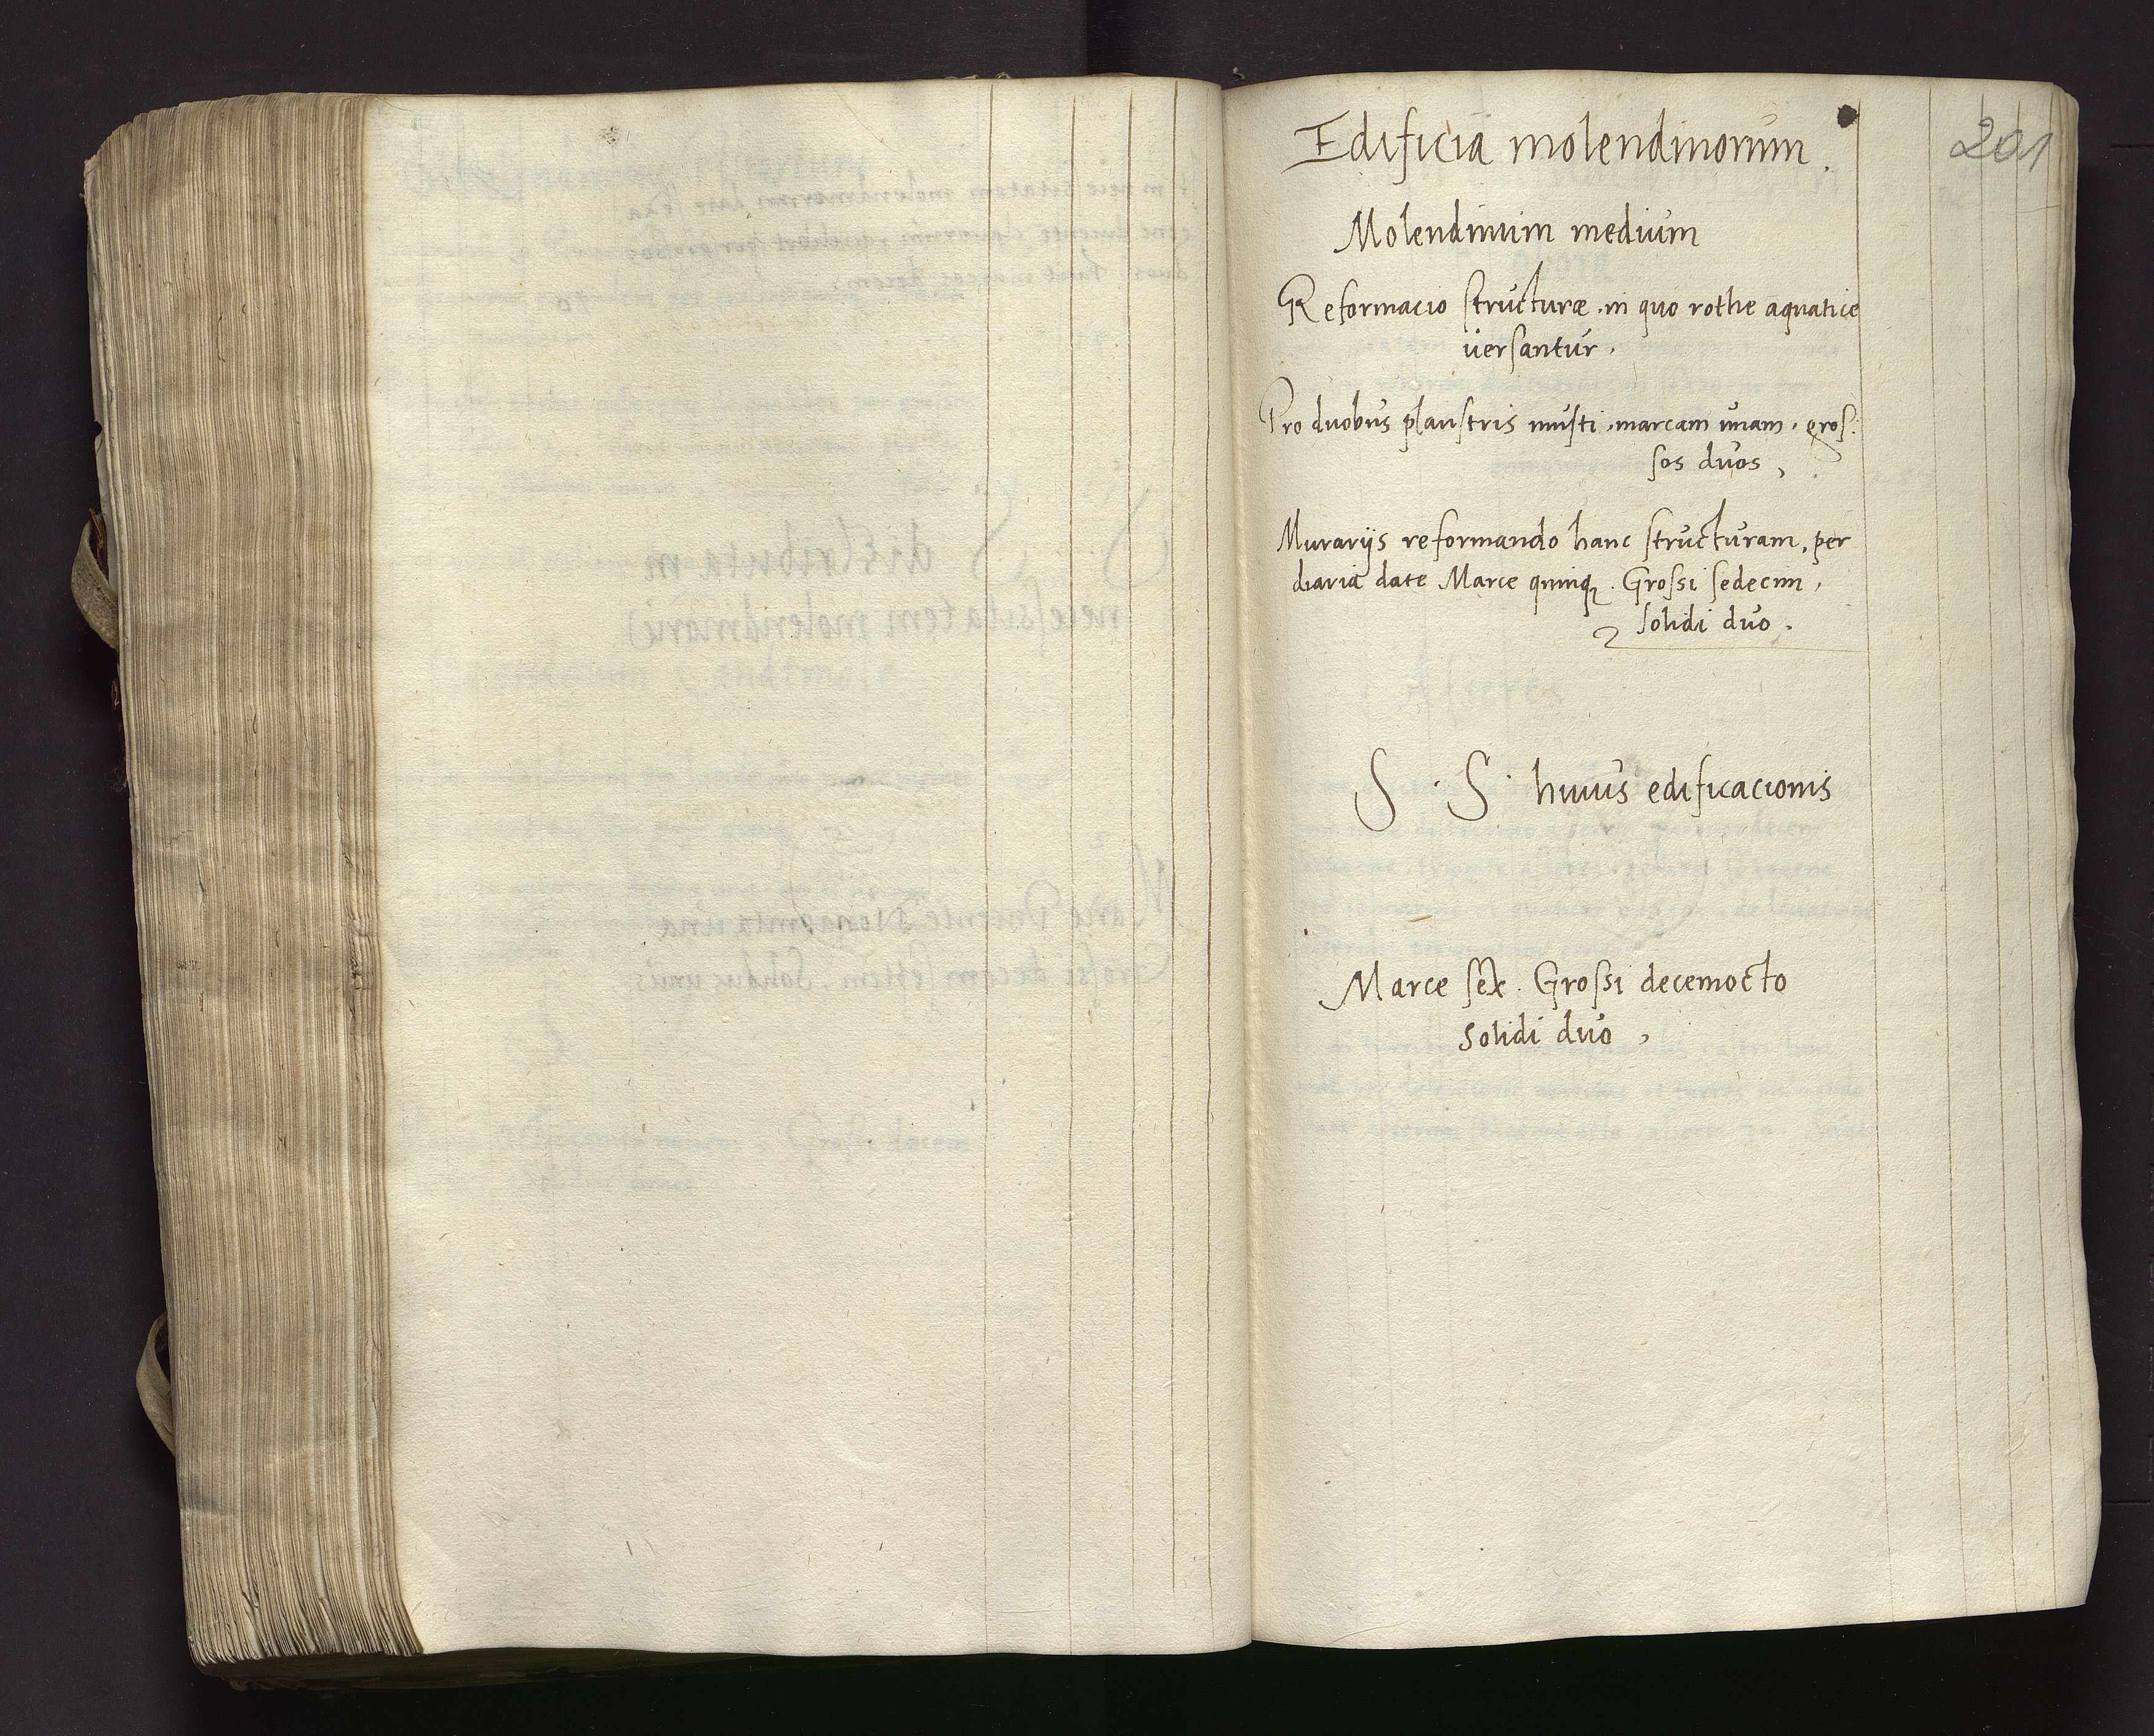 201
Edificia molendinorum.
Molendinum medium
Reformacio structuræ in quo rothe aquatice
versantur.
Pro duobus plaustris musti marcam unam, gros:
sos duos,
Murarijs reformando hanc structuram, per
diaria date Marce quinq. Grossi sedecim,
solidi duo.
S . S . huius edificacionis
Marce sex. Grossi decemocto
Solidi duo,